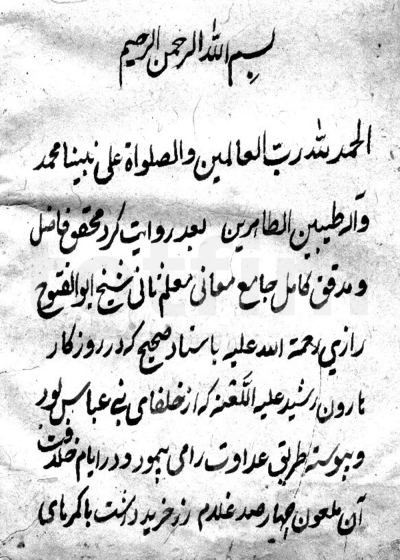 بسم الله الرحمن الرحیم
الحمد لله رب العالمین والصلواة علی نبینا محمد
وآله طیبین الطاهرین بعد روایت کرد محقق فاضل
و مدقق کامل جامع معانی معلم ثانی شیخ ابوالفتوح
رازی رحمة الله علیه باسناد صحیح که در روزکار
هارون رشید علیه اللعنه که از خلفای بنی عباس بود
و پیوسته طریق عداوت رامی پیمود و در ایام خلافت
آن ملعون چهارصد غلام زرخرید داشت باکمرهای